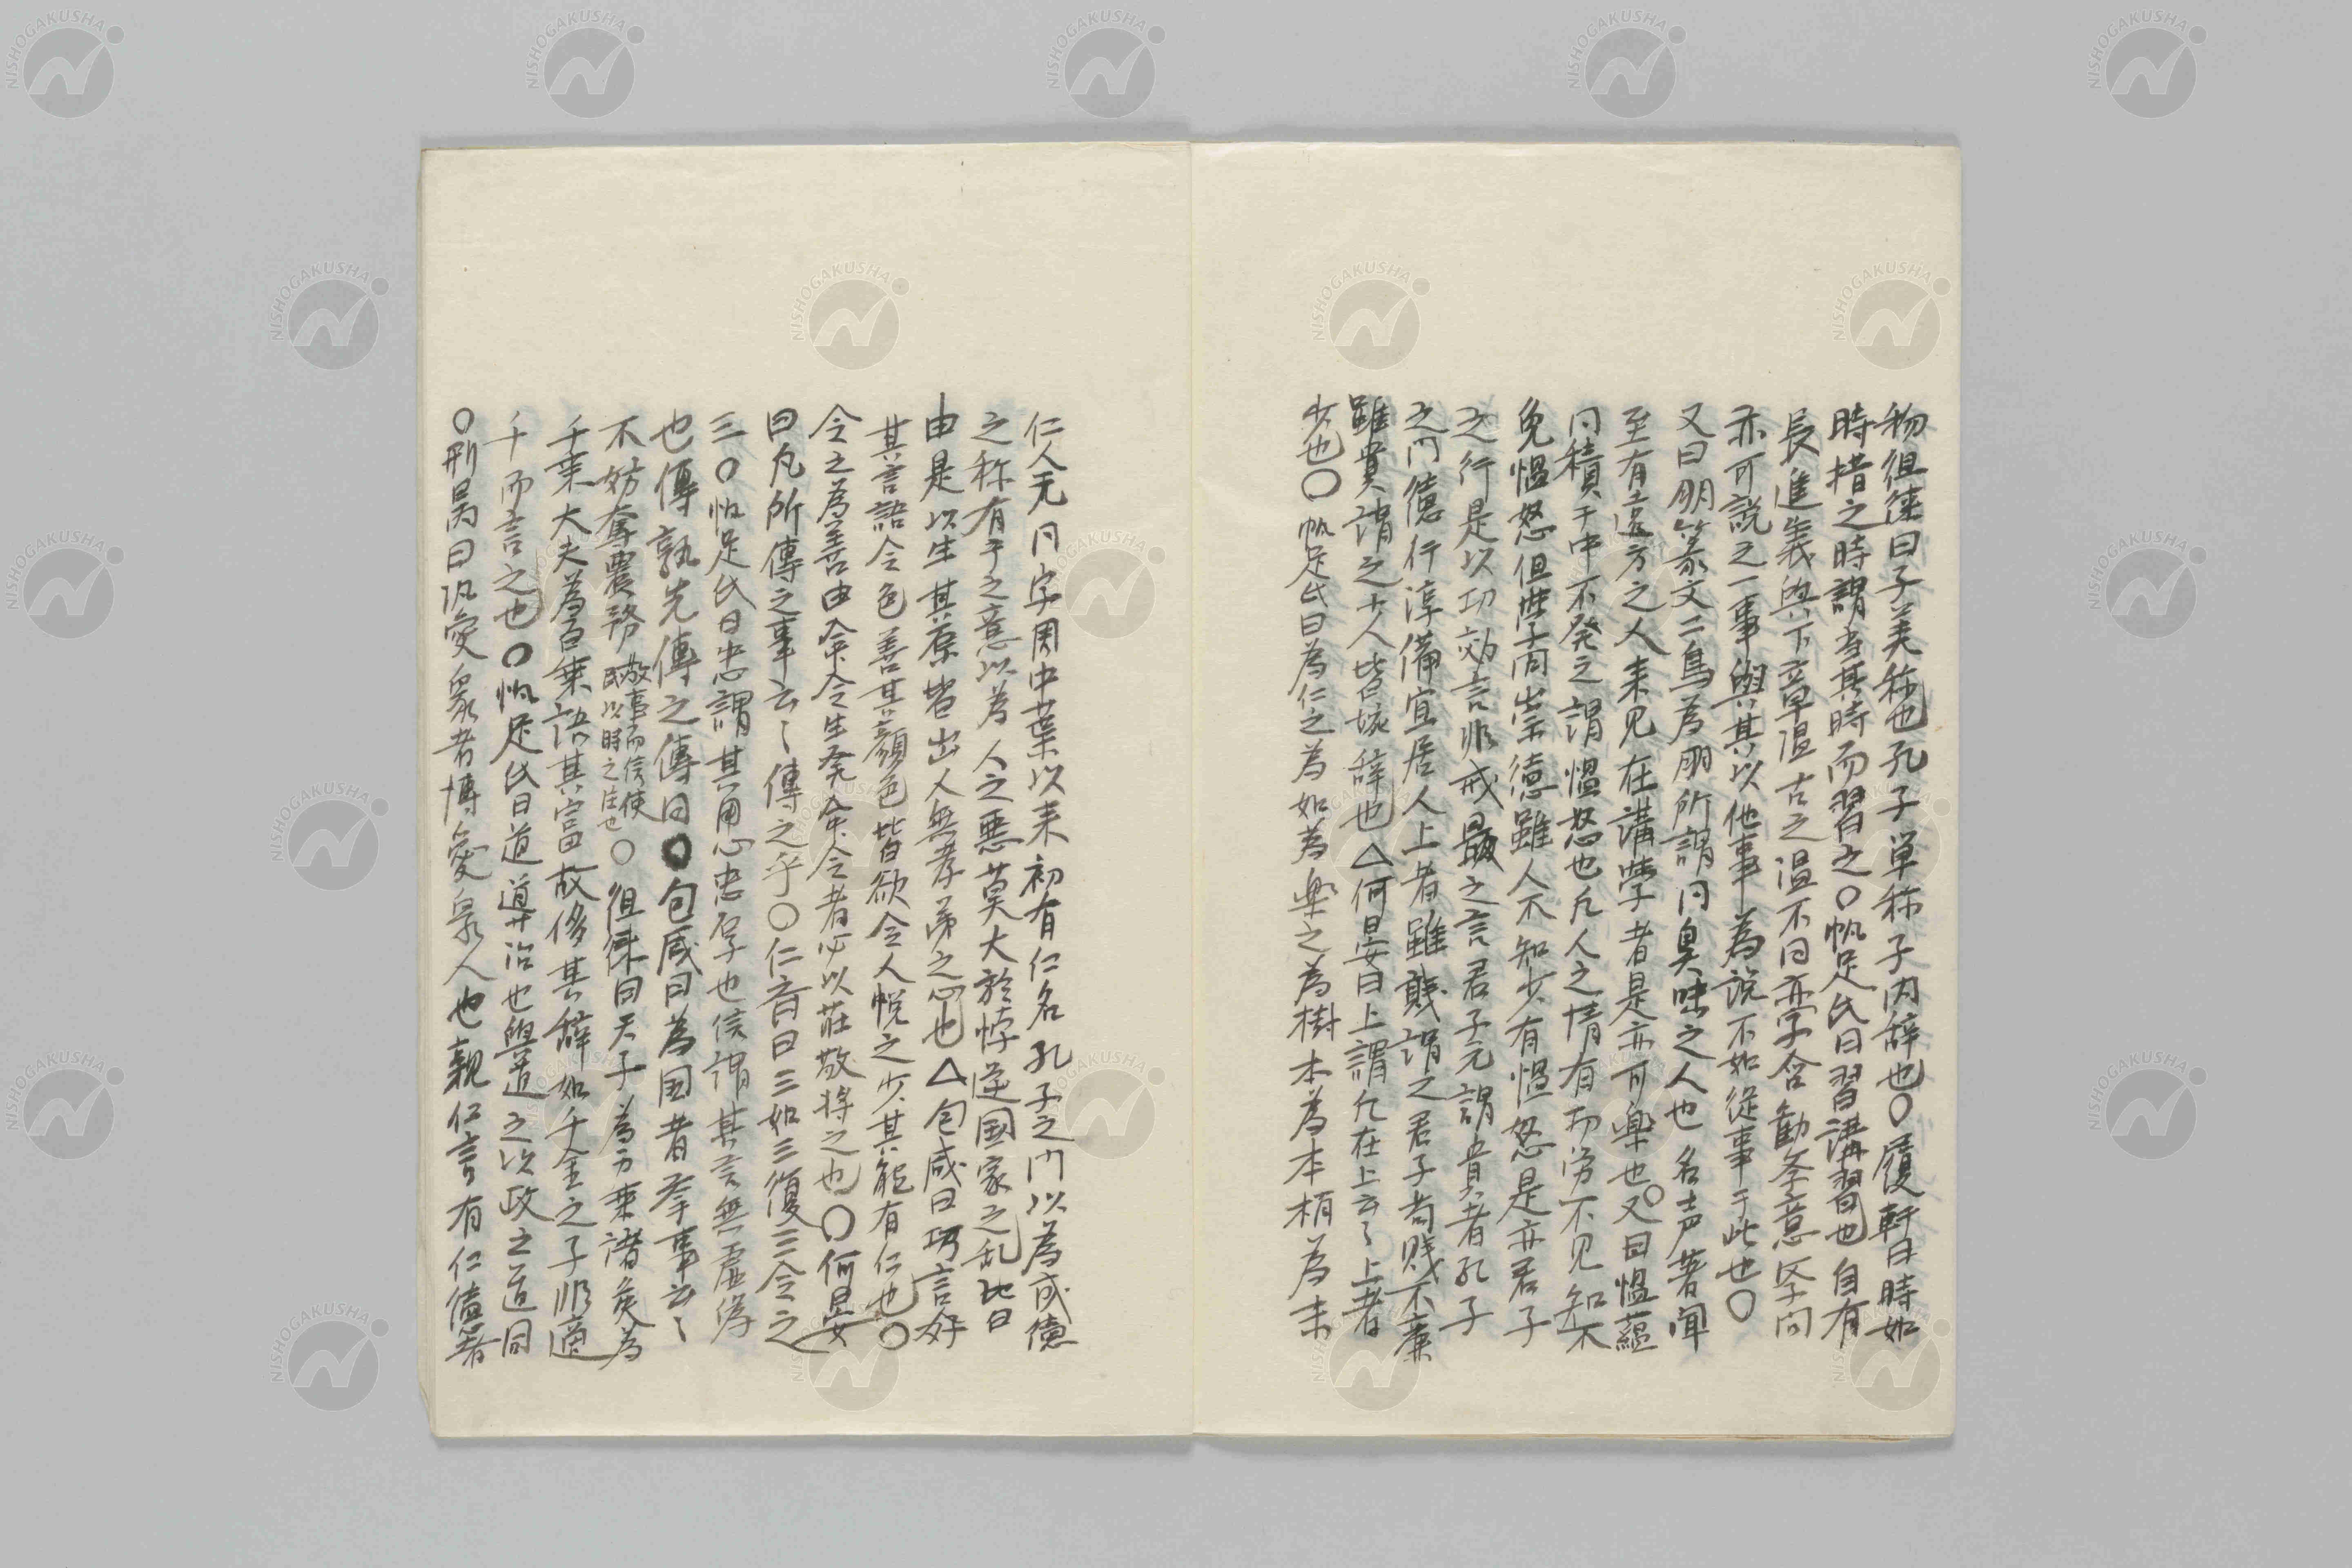 物徂徠曰子美称也孔子単称子内辞也○履軒曰時如
時措之時謂当其時而習之○帆足氏曰習講習也自有
長進義與下章温古之温不同亦字含勧奎意学问
亦可説之一事與其以他事為説不如従事于此也○
又曰朋篆文二鳥為朋所謂同臭味之人也名声著闻
至有遠方之人来见在講学者是亦可楽也○又曰愠蘊
同積于中不発之謂愠怒也凡人之情有功労不见知不
免愠怒但学问崇德雖人不知少有愠怒是亦君子
之行是以功効言非戒最之言君子元謂貴者孔子
之门德行淳備宜居人上者雖賤謂之君子尚賎不廉
雖貴謂之少人皆後辞也△何晏曰上謂凡在上云々上者
少也○帆足氏曰為仁之為如為楽之為樹本為本梢為末
仁人元同字周中葉以来初有仁名孔子之门以為成德
之称有子之意以為人之悪莫大於悖逆国家之乱比日
由是以生其原皆出人無孝弟之心也△包咸曰巧言好
其言語令色善其顔色皆欲令人悦之少其能有仁也○
令之為善由命令生矣命令者必以荘敬将之也○何晏
曰凡所傳之事云々傳之乎○仁斎曰三如三復三令之
三○帆足氏曰忠謂其用心忠厚也信謂其言無虚偽
也傳孰先傳之傳同○包咸曰為国者挙事云々
不妨奪農務敬事而信使民以時之注也○徂徠曰天子為万乗諸矦為
千乗大夫為百乗語其富故侈其辞如千金之子非適
千而言之也○帆足氏曰道導治也與道之以政之道同
○刑昺曰汎愛衆者博愛衆人也親仁言有仁德者
NISHOGAKUSHA